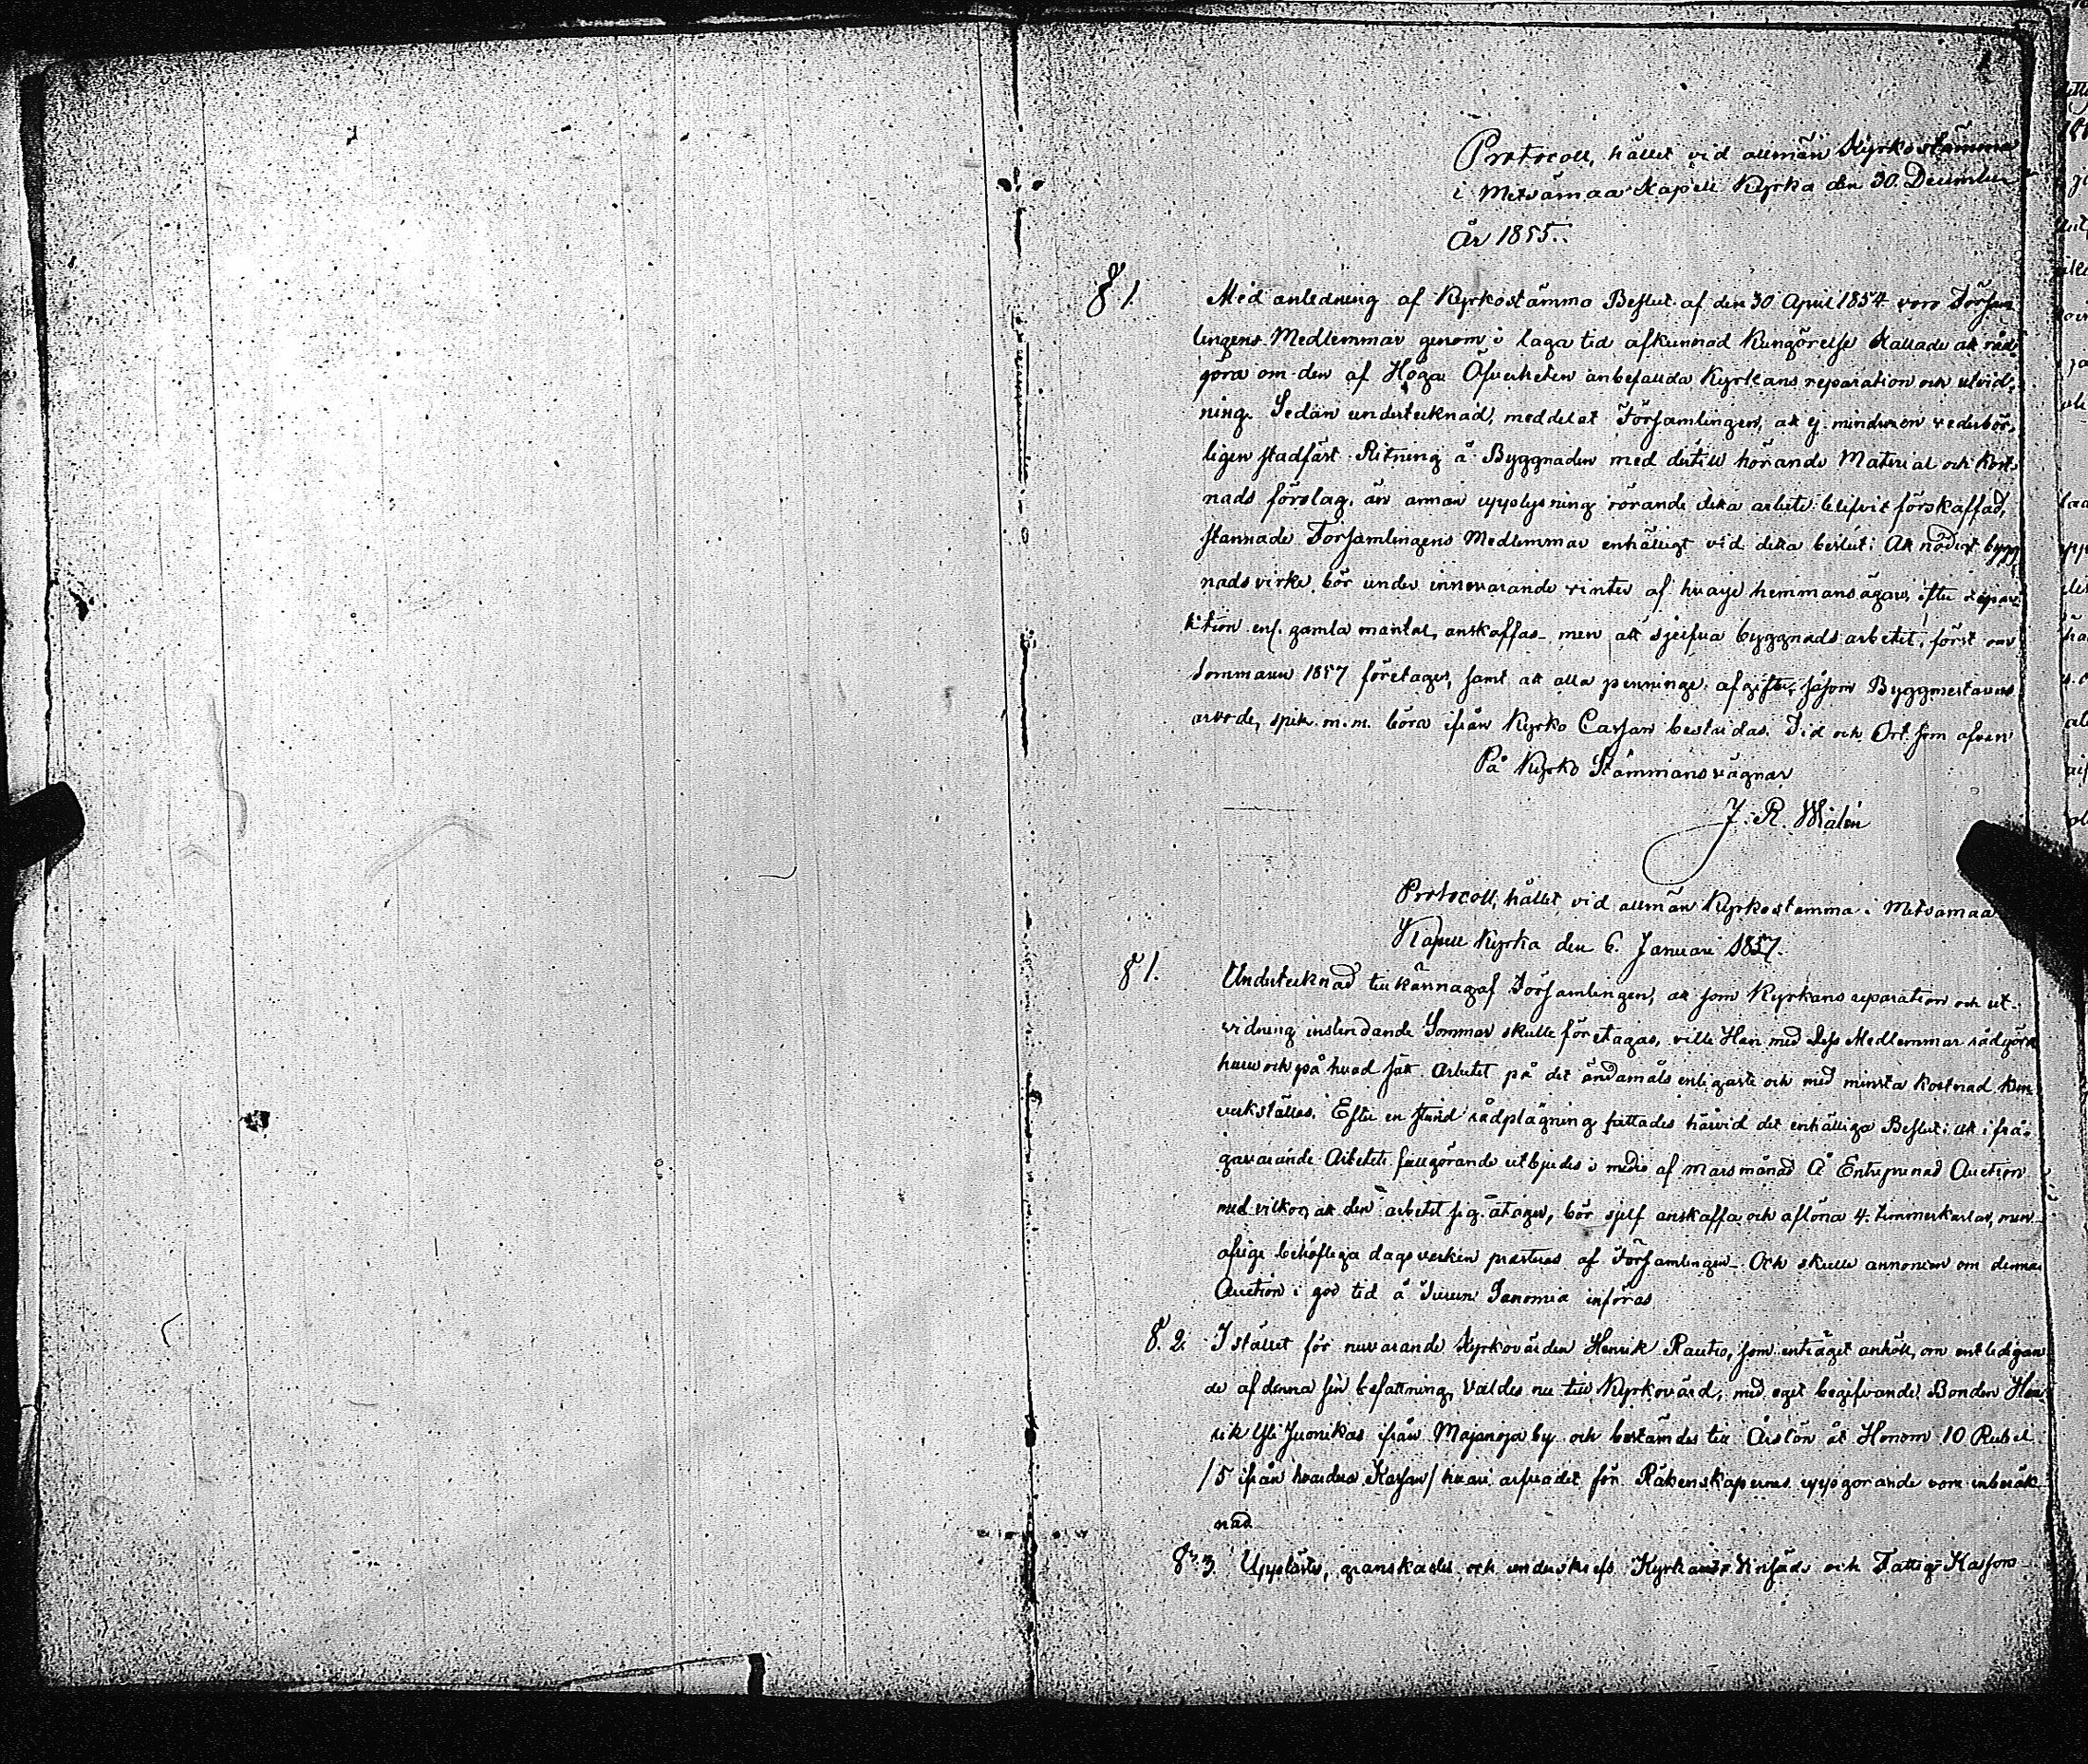 Protocoll, hållet vid allmän Kyrkostämma
i Metsämaa Kapell Kyrka den 30. December
År 1855.
§ 1. Med anledning af Kyrkostämmo Beslut af den 30 April 1854 voro Försam
lingens Medlemmar genom i laga tid afkunnad Kungörelse kallade att råd-
göra om den af Höga Öfverheten anbefallda Kyrkans reparation och utvid-
ning. Sedan undertecknad, meddelat Församlingen, att ej mindre en vederbör-
ligen stadfäst Ritning å Byggnaden med dertill hörande Material och Kost-
nads förslag, än annan upplysning rörande detta arbete blifvit förskaffad,
stannade Församlingens Medlemmar enhälligt vid detta beslut: Att nödigt bygg-
nads virke, bör under innevarande vinter af hvarje hemmansägare, efter repar-
tition enl. gamla mantal, anskaffas – men att sjelfva byggnads arbetet, först om
Sommaren 1857 företages, samt att alla penninge afgifter, såsom Byggmestarens
arvode, spik m.m. böra ifrån Kyrko Cassan bestridas. Tid och Ort som ofvan
På Kyrko Stämmans vägnar
J. R. Walén
Protocoll, hållet vid allmän Kyrkostämma i Metsämaa
Kapell Kyrka den 6. Januari 1857.
§ 1. Undertecknad tillkännagaf Församlingen, att som Kyrkans reparation och ut-
vidning instundande Sommar skulle företagas, ville Han med dess Medlemmar rådgöra
huru och på hvad sätt Arbetet på det ändamåls enligaste och med minsta kostnad kun
verkställas. Efter en stund rådplägning fattades härvid det enhälliga Beslut: att ifrå-
gavarande Arbetets fullgörande utbjudes i medio af Mars månad å Entreprenad Auction
med vilkor, att den arbetet sig åtager, bör sjelf anskaffa och aflöna 4. timmerkarlar, men
öfrige behöfliga dagsverken presteras af Församlingen – Och skulle annoncen om denna
Auction i god tid å Turun Sanomia införas
§. 2. I stället för nuvarande Kyrkovärden Henrik Rautio, som enträget anhöll, om entledigan
de af denna sin befattning, valdes nu till Kyrkovärd, med eget begifvande, Bonden Hen-
rik Yli Juonikas ifrån Majanoja by och bestämdes till Årslön åt Honom 10 Rubel
/5 ifrån hvardera Kassan/ hvari arfvodet för Räkenskapernes uppgörande vore inberäk-
nad.
§. 3. Upplästes, granskades och underskrefs Kyrkans- Vinsäds och Fattig-Kassors